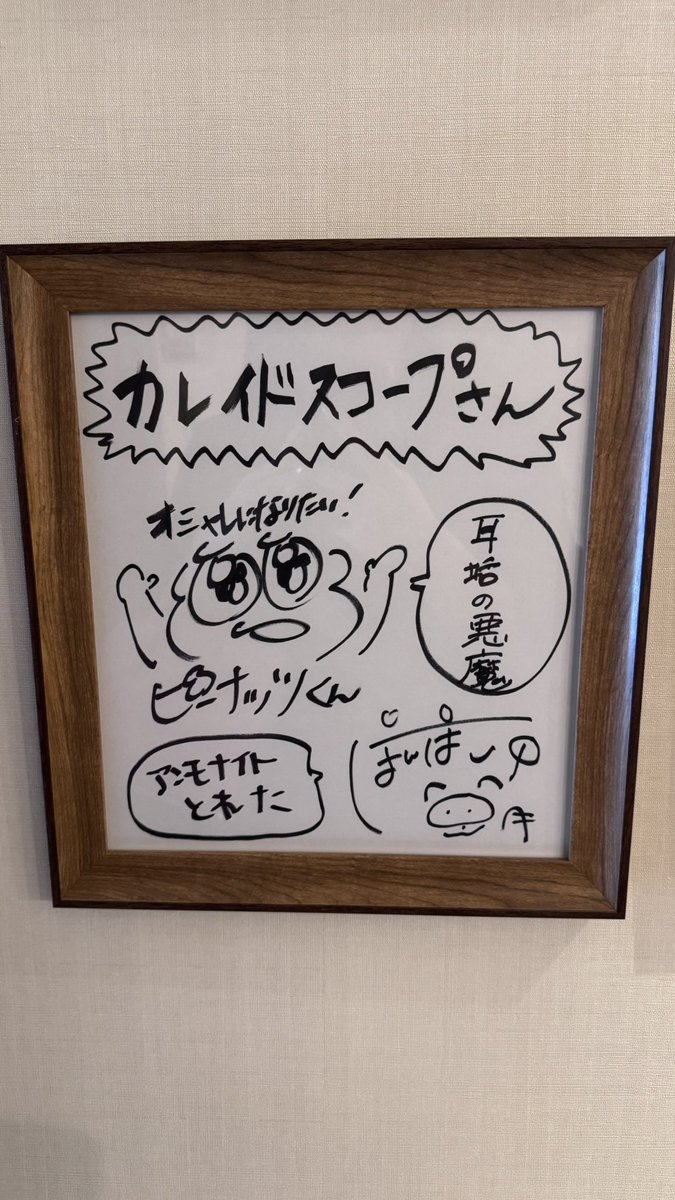 カレイドスコープさん
オシャレになりたい!
ピーナッツくん
耳垢の悪魔
アンモナイト
とれた
ぽんぽこ